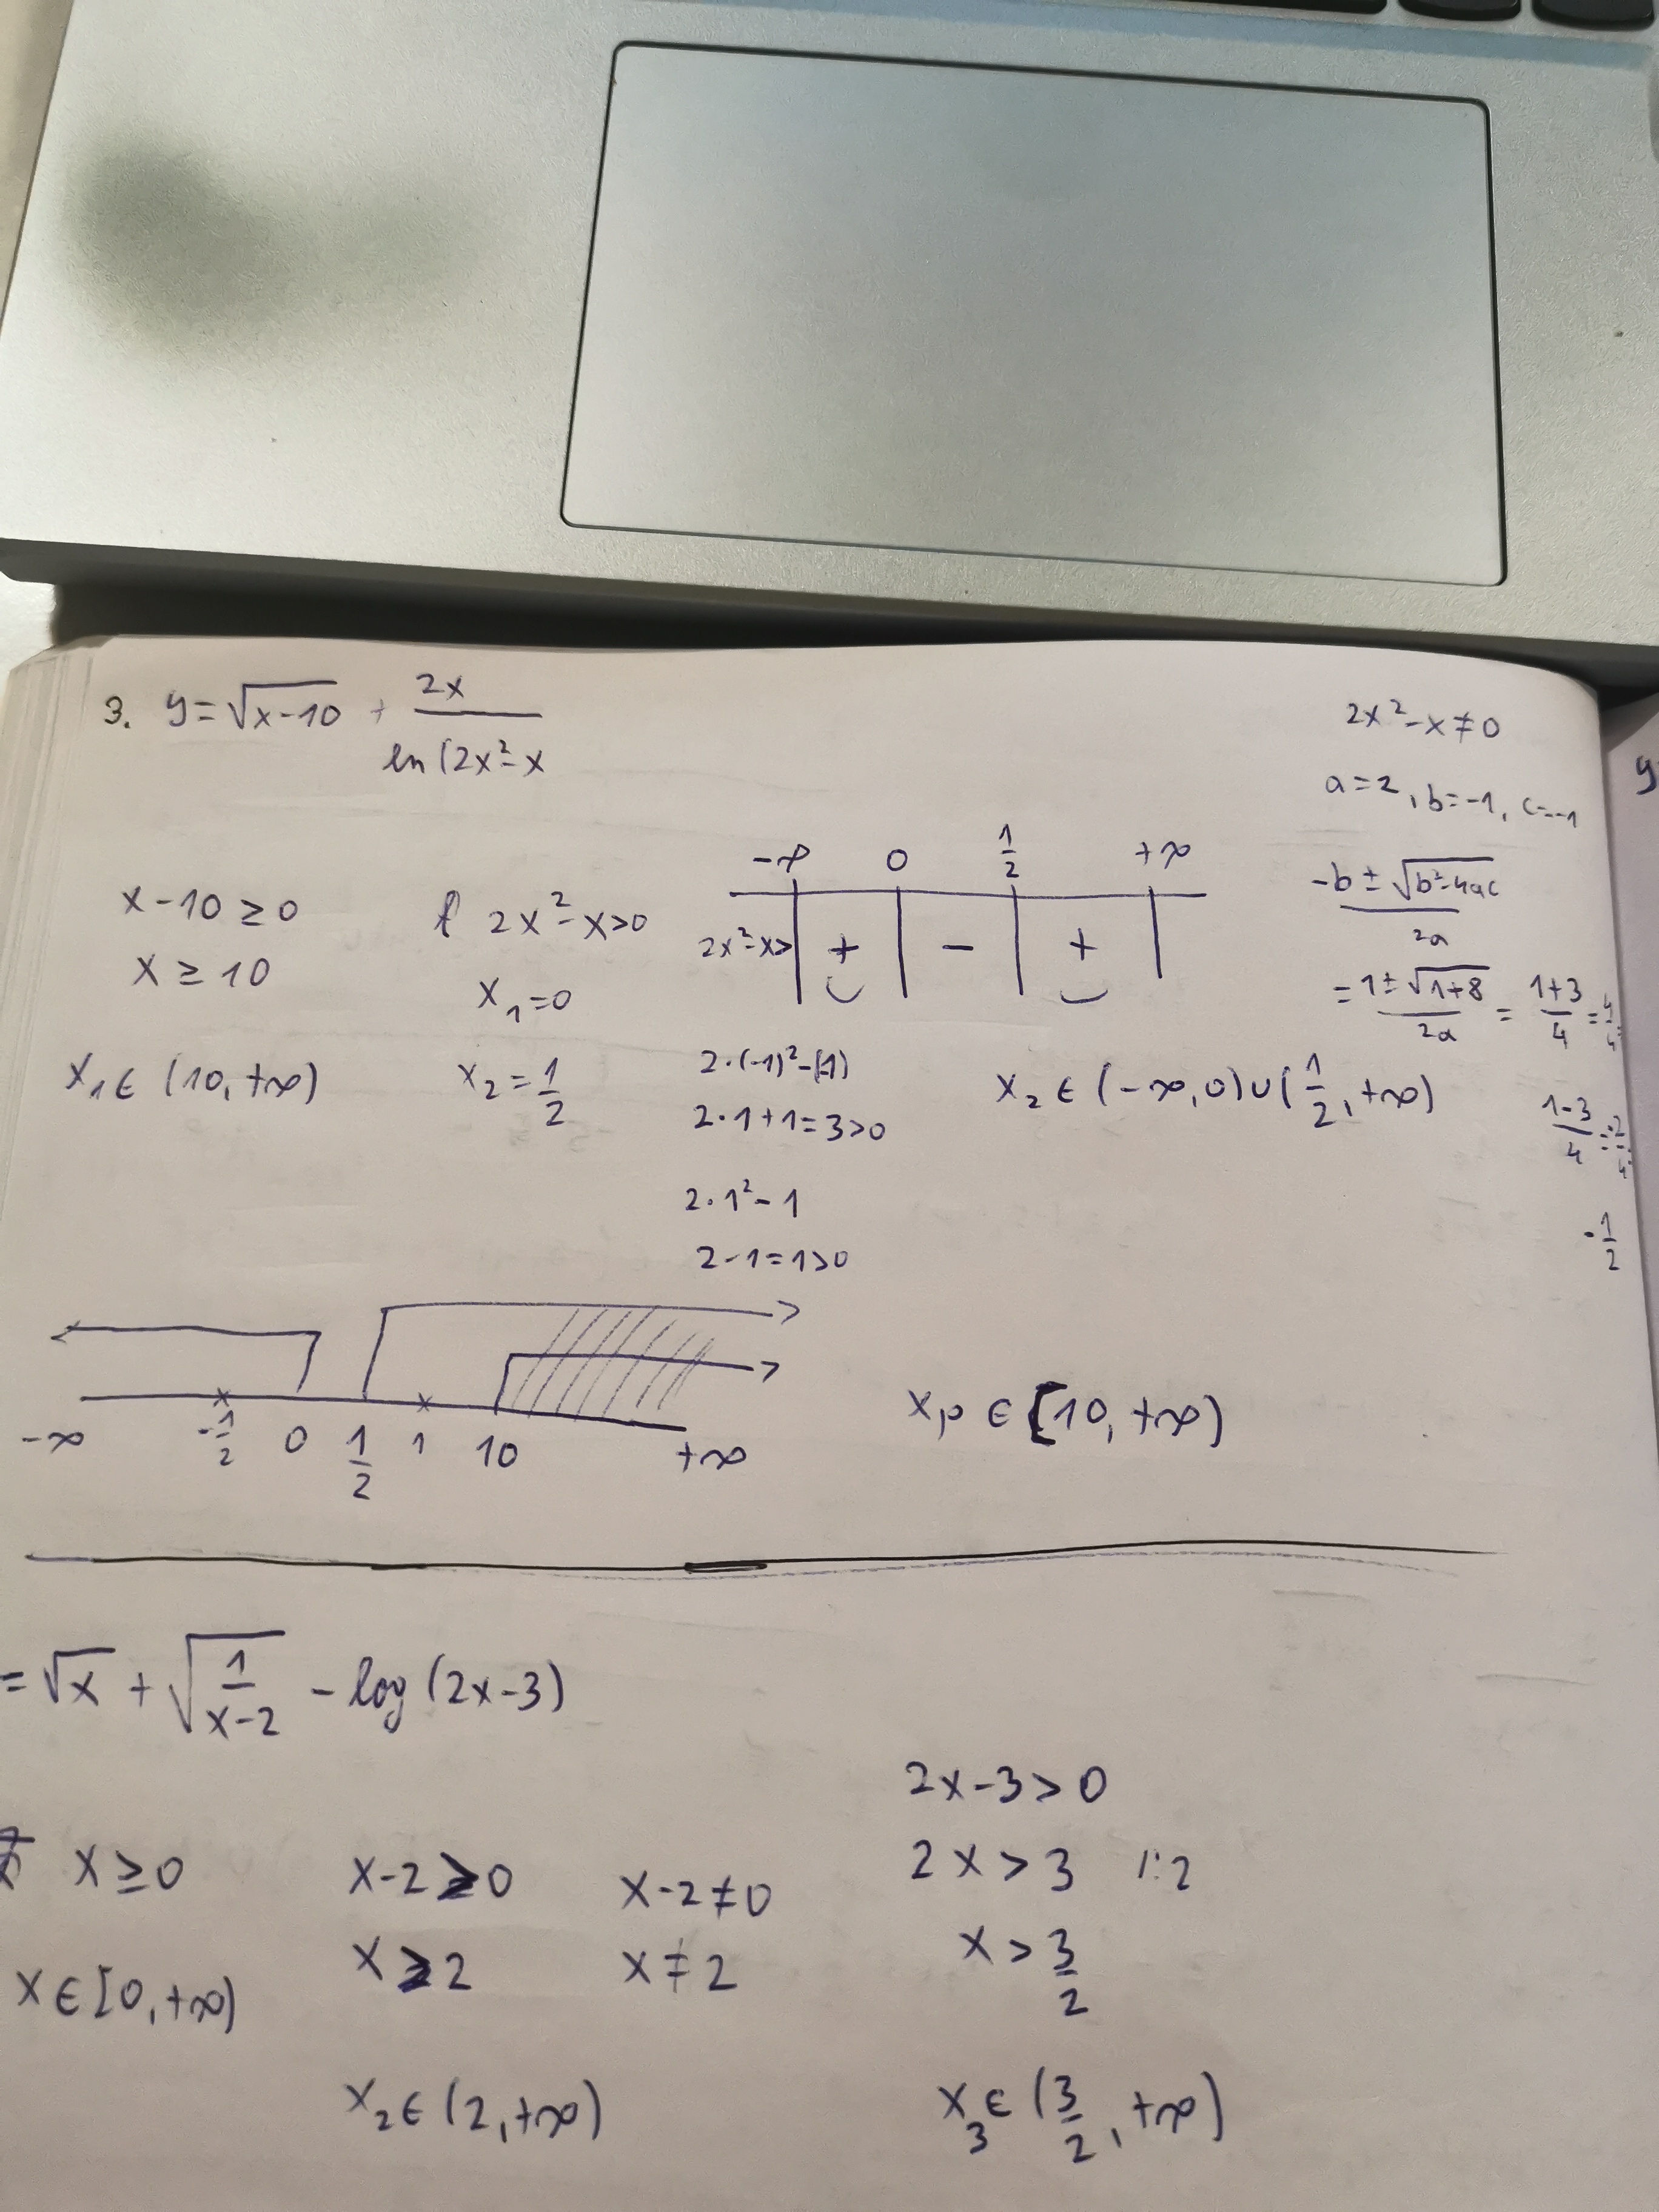 3. y = √(x-10) + 2x / ln(2x²-x
x-10 ≥ 0
x ≥ 10
x₁ ∈ (10, +∞)
2x²-x>0
x₁=0
x₂ = 1/2
-∞ 0 1/2 +∞
2x²-x> + - +
2·(-1)²-(-1)
2·1+1=3>0
2·1²-1
2-1=1>0
x₂ ∈ (-∞,0)∪(1/2, +∞)
2x²-x≠0
a=2, b=-1, c=-1
-b ± √(b²-4ac) / 2a
= 1±√(1+8) / 2a = 1+3 / 4 = 4/4
1-3 / 4 = -2/4
-1/2
-∞ -1/2 0 1/2 1 10 +∞
xₚ ∈ [10, +∞)
= √x + √(1/(x-2)) - log(2x-3)
x ≥ 0
x ∈ [0, +∞)
x-2 > 0
x > 2
x₂ ∈ (2, +∞)
x-2 ≠ 0
x ≠ 2
2x-3 > 0
2x > 3 /:2
x > 3/2
x₃ ∈ (3/2, +∞)